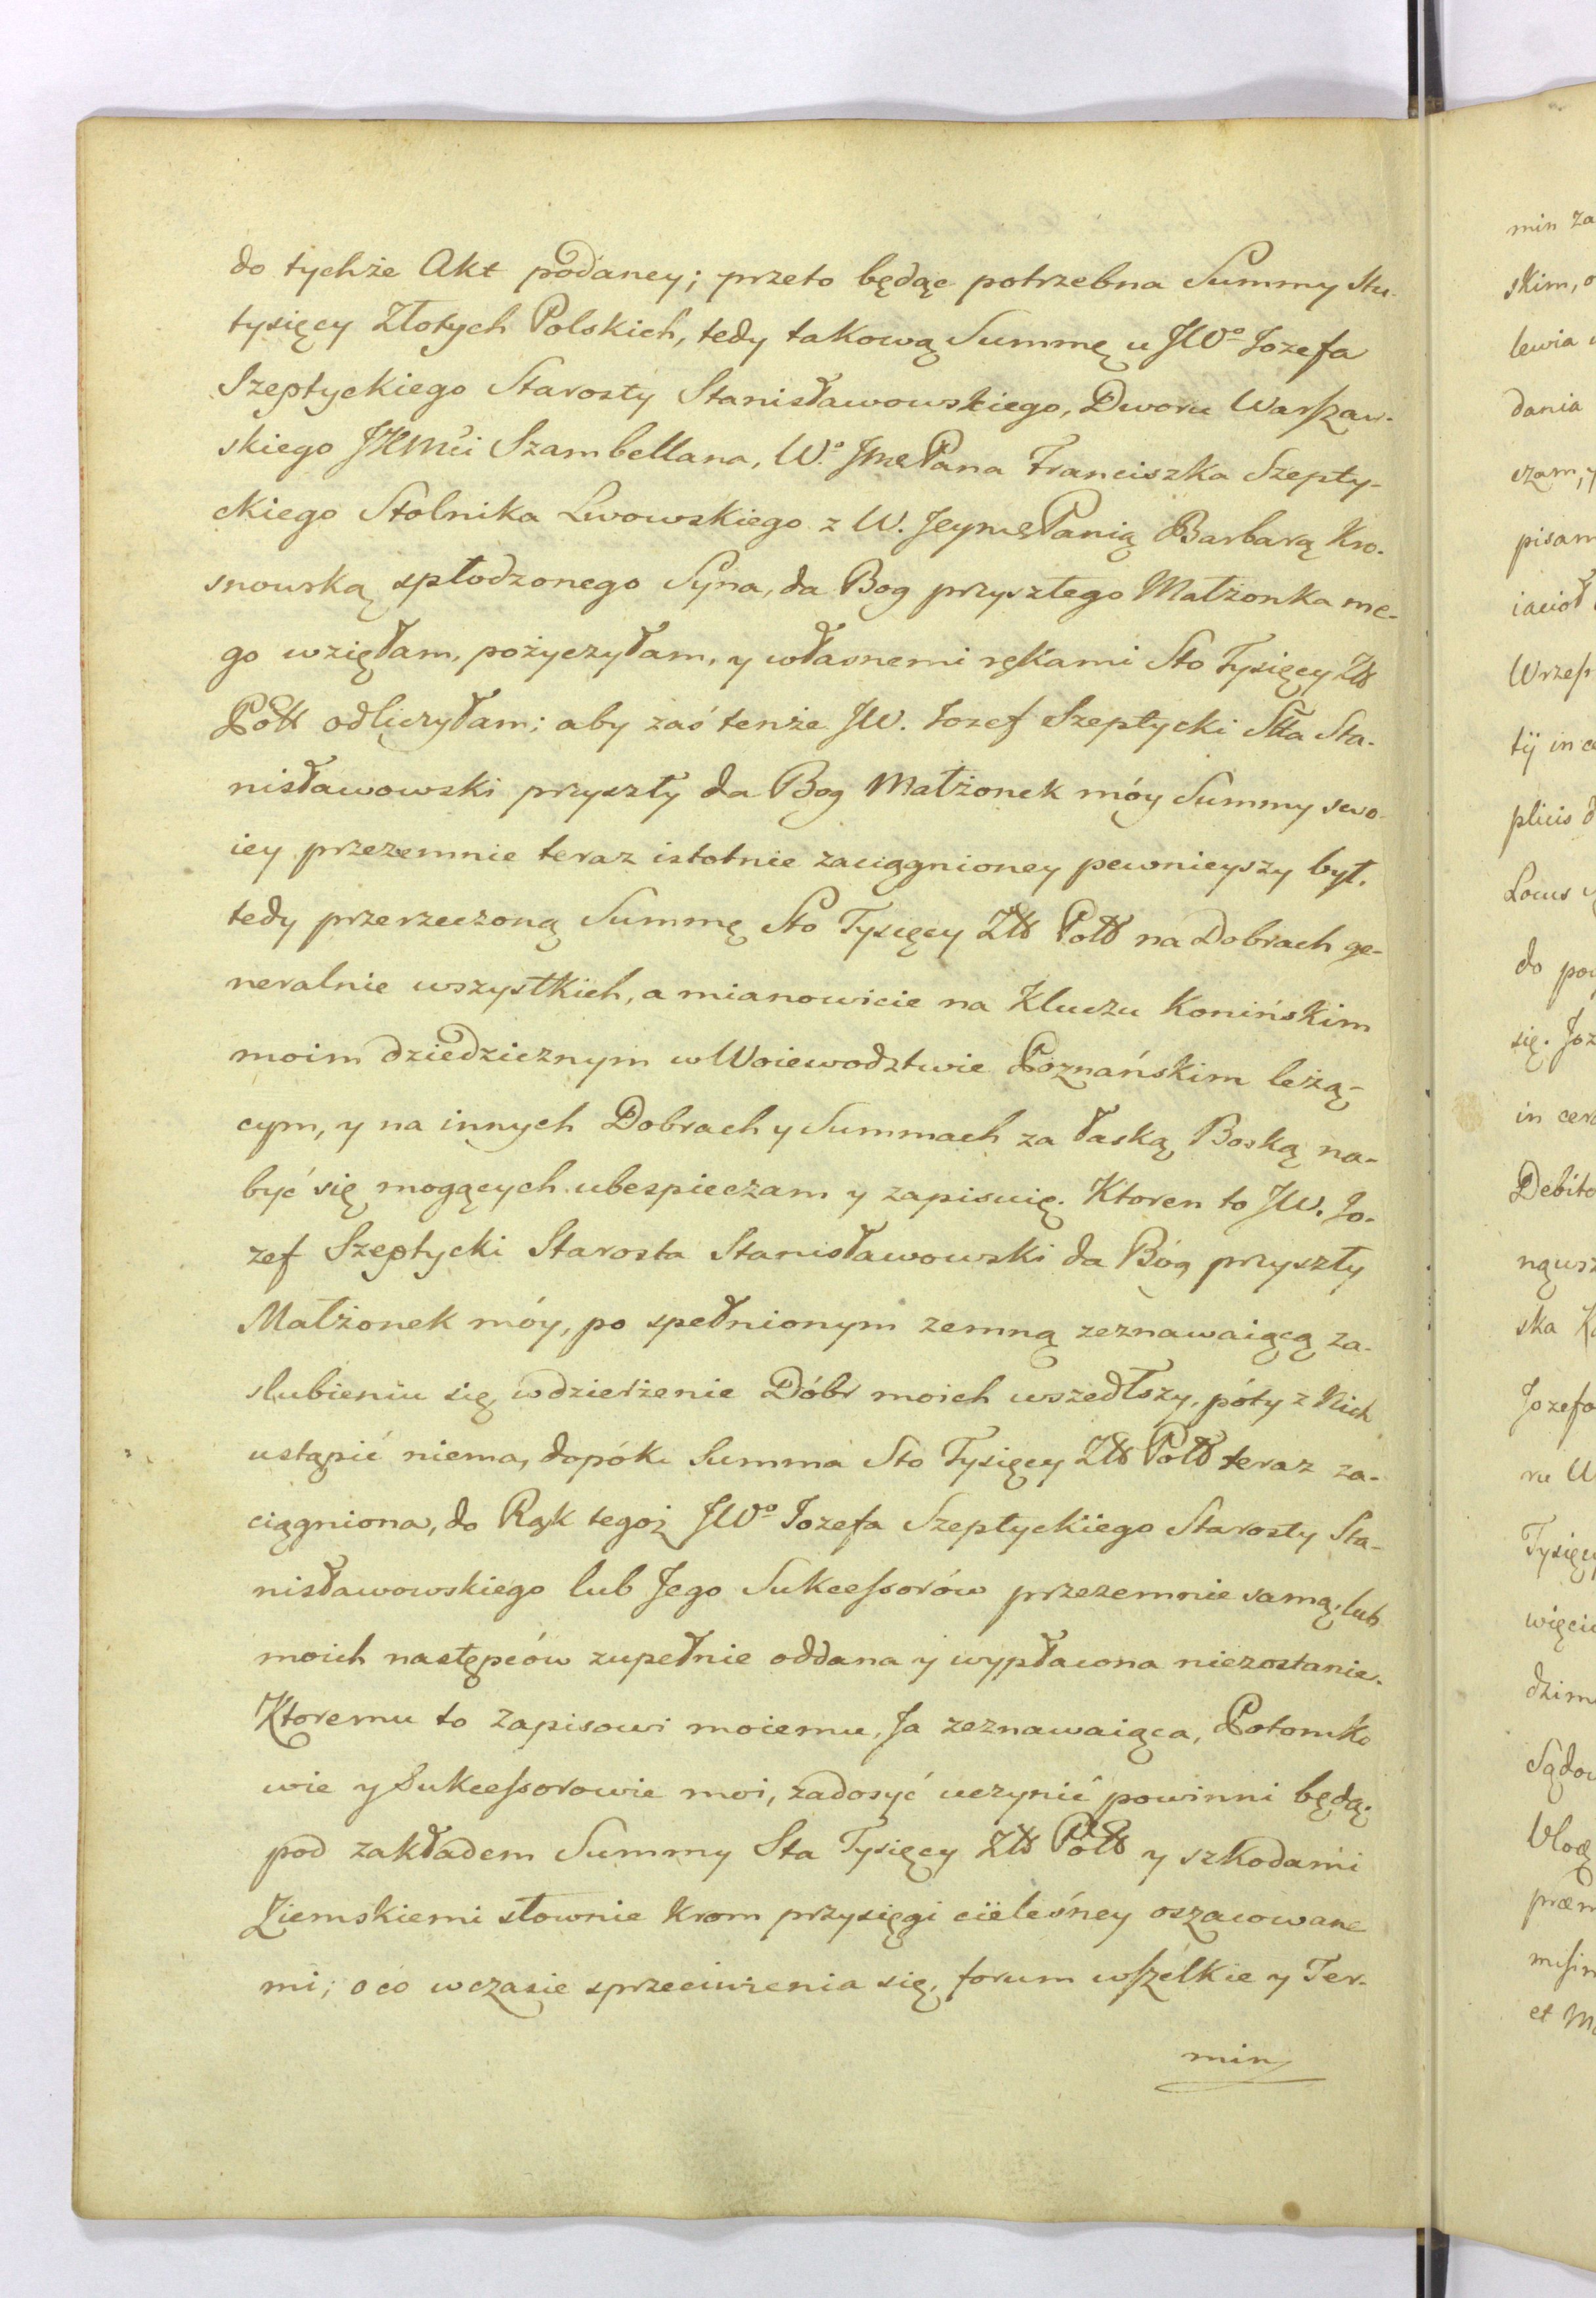 do tychże Akt podaney; przeto będąc potrzebna Summy Stu-
tysięcy Złotych Polskich, tedy takową Summę u JWo Jozefa
Szeptyckiego Starosty Stanisławowskiego, Dworu Warszaw-
skiego JKMći Szambellana, W.o JmćPana Franciszka Szepty-
ckiego Stolnika Lwowskiego z W. JeymćPanią Barbarą Kro-
snowską spłodzonego Syna, da Bog przyszłego Małżonka me-
go wzięłam, pożyczyłam, y własnemi rękami Sto Tysięcy Złł
Poll odliczyłam; aby zaś tenże JW. Jozef Szeptycki Stta Sta-
nisławowski przyszły da Bog Małżonek móy Summy swo-
iey przezemnie teraz istotnie zaciągnioney pewnieyszy był.
tedy przerzeczoną Summę Sto Tysięcy Złł Poll na Dobrach ge-
neralnie wszystkich, a mianowicie na Kluczu Konińskim
moim dziedzicznym w Woiewodztwie Poznańskim leżą-
cym, y na innych Dobrach y Summach za łaską Boską na-
być się mogących ubespieczam y zapisuię. Ktoren to JW. Jo-
zef Szeptycki Starosta Stanisławowski da Bóg przyszły
Małżonek móy, po spełnionym zemną zeznawaiącą za-
slubieniu się, w dzierżenie Dóbr moich wszedłszy, póty z Nich
ustąpić niema, dopóki Summa Sto Tysięcy Złł Poll teraz za-
ciągniona, do Rąk tegoż JWo Jozefa Szeptyckiego Starosty Sta-
nisławowskiego lub Jego Sukcessorów przezemnie samą, lub
moich następców zupełnie oddana y wypłacona niezostanie.
Ktoremu to Zapisowi moiemu, Ja zeznawaiąca, Potomko
wie y Sukcessorowie moi, zadosyć uczynić powinni będą;
pod zakładem Summy Sta Tysięcy Złł Poll y szkodami
Ziemskiemi słownie krom przysięgi cieleśney oszacowane
mi; o co w czasie sprzeciwienia się, forum wszelkie y Ter-
min
min za
skim, o
lewia
dania
czam, y
pisam
iacioł
Wrześ
tÿ in ce
plicis d
Locus
do po
się. Joz
in cer
Debito
ngusz
ska K
Jozefa
ru W
Tysięcy
więci
dzim
Sądow
Vloq
præm
missim
et Ma